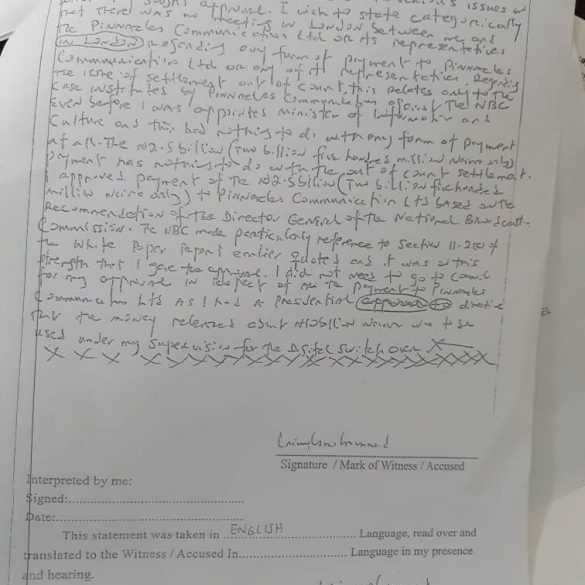 approval. I wish to state categorically
that there was no meeting in London between me and
the Pinnacles Communication Ltd or its representatives
in London regarding any form of payment to Pinnacles
Communication Ltd or any of its representatives. Regarding
the issue of settlement out of court, this relates only to the
case instituted by Pinnacles Communication against the NBC
even before I was appointed Minister of Information and
Culture and this had nothing to do with any form of payment
at all. The N2.5 billion (Two billion five hundred million Naira only)
payment has nothing to do with the out of court settlement.
I approved payment of the N2.5 billion (Two billion five hundred
million Naira only) to Pinnacles Communication Ltd based on the
Recommendation of the Director General of the National Broadcast-
Commission. The NBC made particularly reference to Section 11.2
of the White Paper Report earlier quoted and it was on this
strength that I gave the approval. I did not need to go to Council
for my approval in respect of the payment to Pinnacles
Communication Ltd as I had a Presidential approval to directive
that the money released about N10billion Naira was to be
used under my supervision for the Digital Switch over
X X X X X X X X X X X X X X X X X X X
Signature / Mark of Witness / Accused
Interpreted by me:
Signed:
Date:
This statement was taken in ENGLISH Language, read over and
translated to the Witness / Accused In Language in my presence
and hearing.